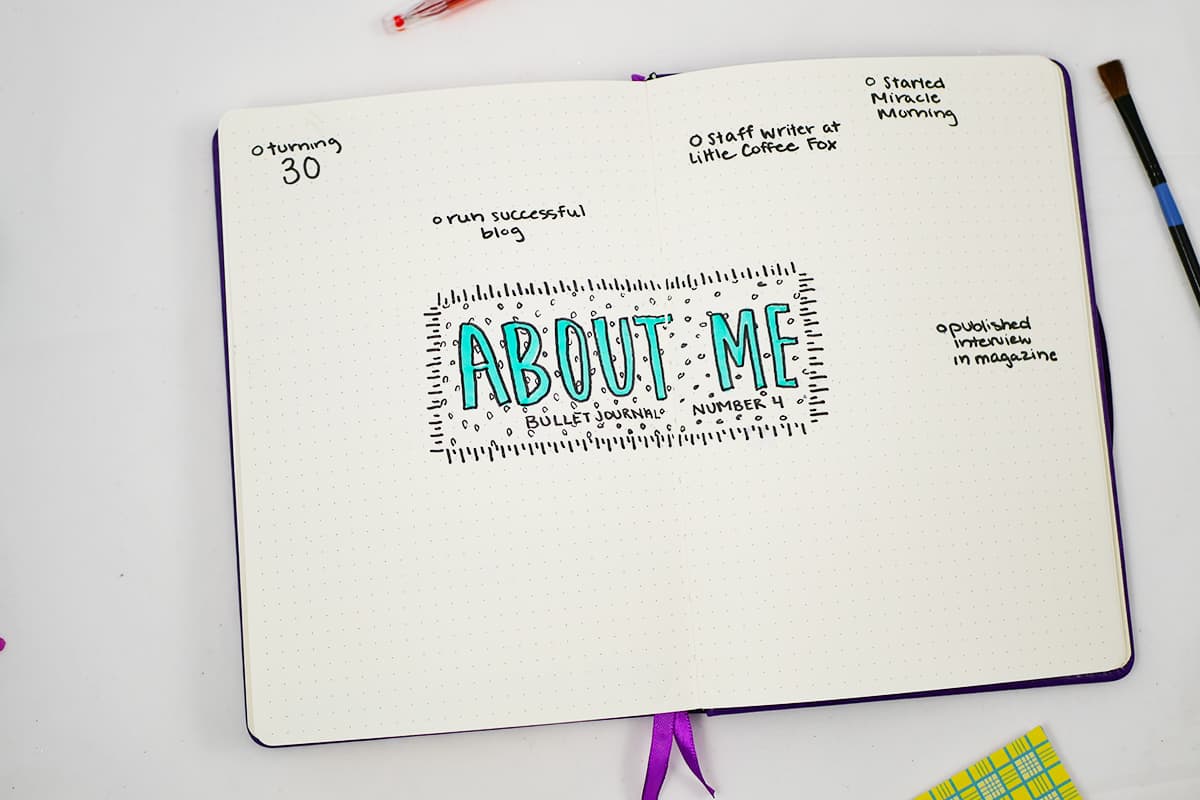 turning
30
run successful
blog
Staff Writer at
Little Coffee Fox
Started
Miracle
Morning
published
interview
in magazine
ABOUT ME
BULLET JOURNAL NUMBER 4